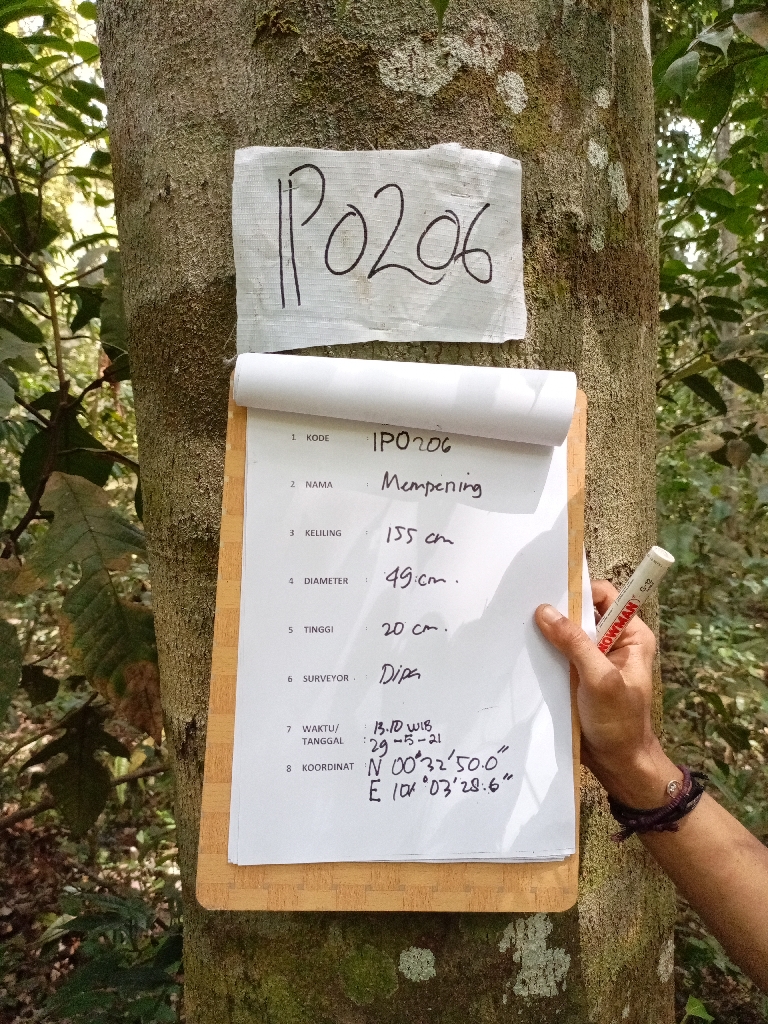 IPO206
1 KODE : IPO206
2 NAMA : Mempening
3 KELILING : 155 cm
4 DIAMETER : 49 cm.
5 TINGGI : 20 cm.
6 SURVEYOR : Dipa
7 WAKTU/ : 13.10 WIB
TANGGAL : 29-5-21
8 KOORDINAT N 00°32'50.0"
E 101°03'28.6"
SNOWMAN G-12